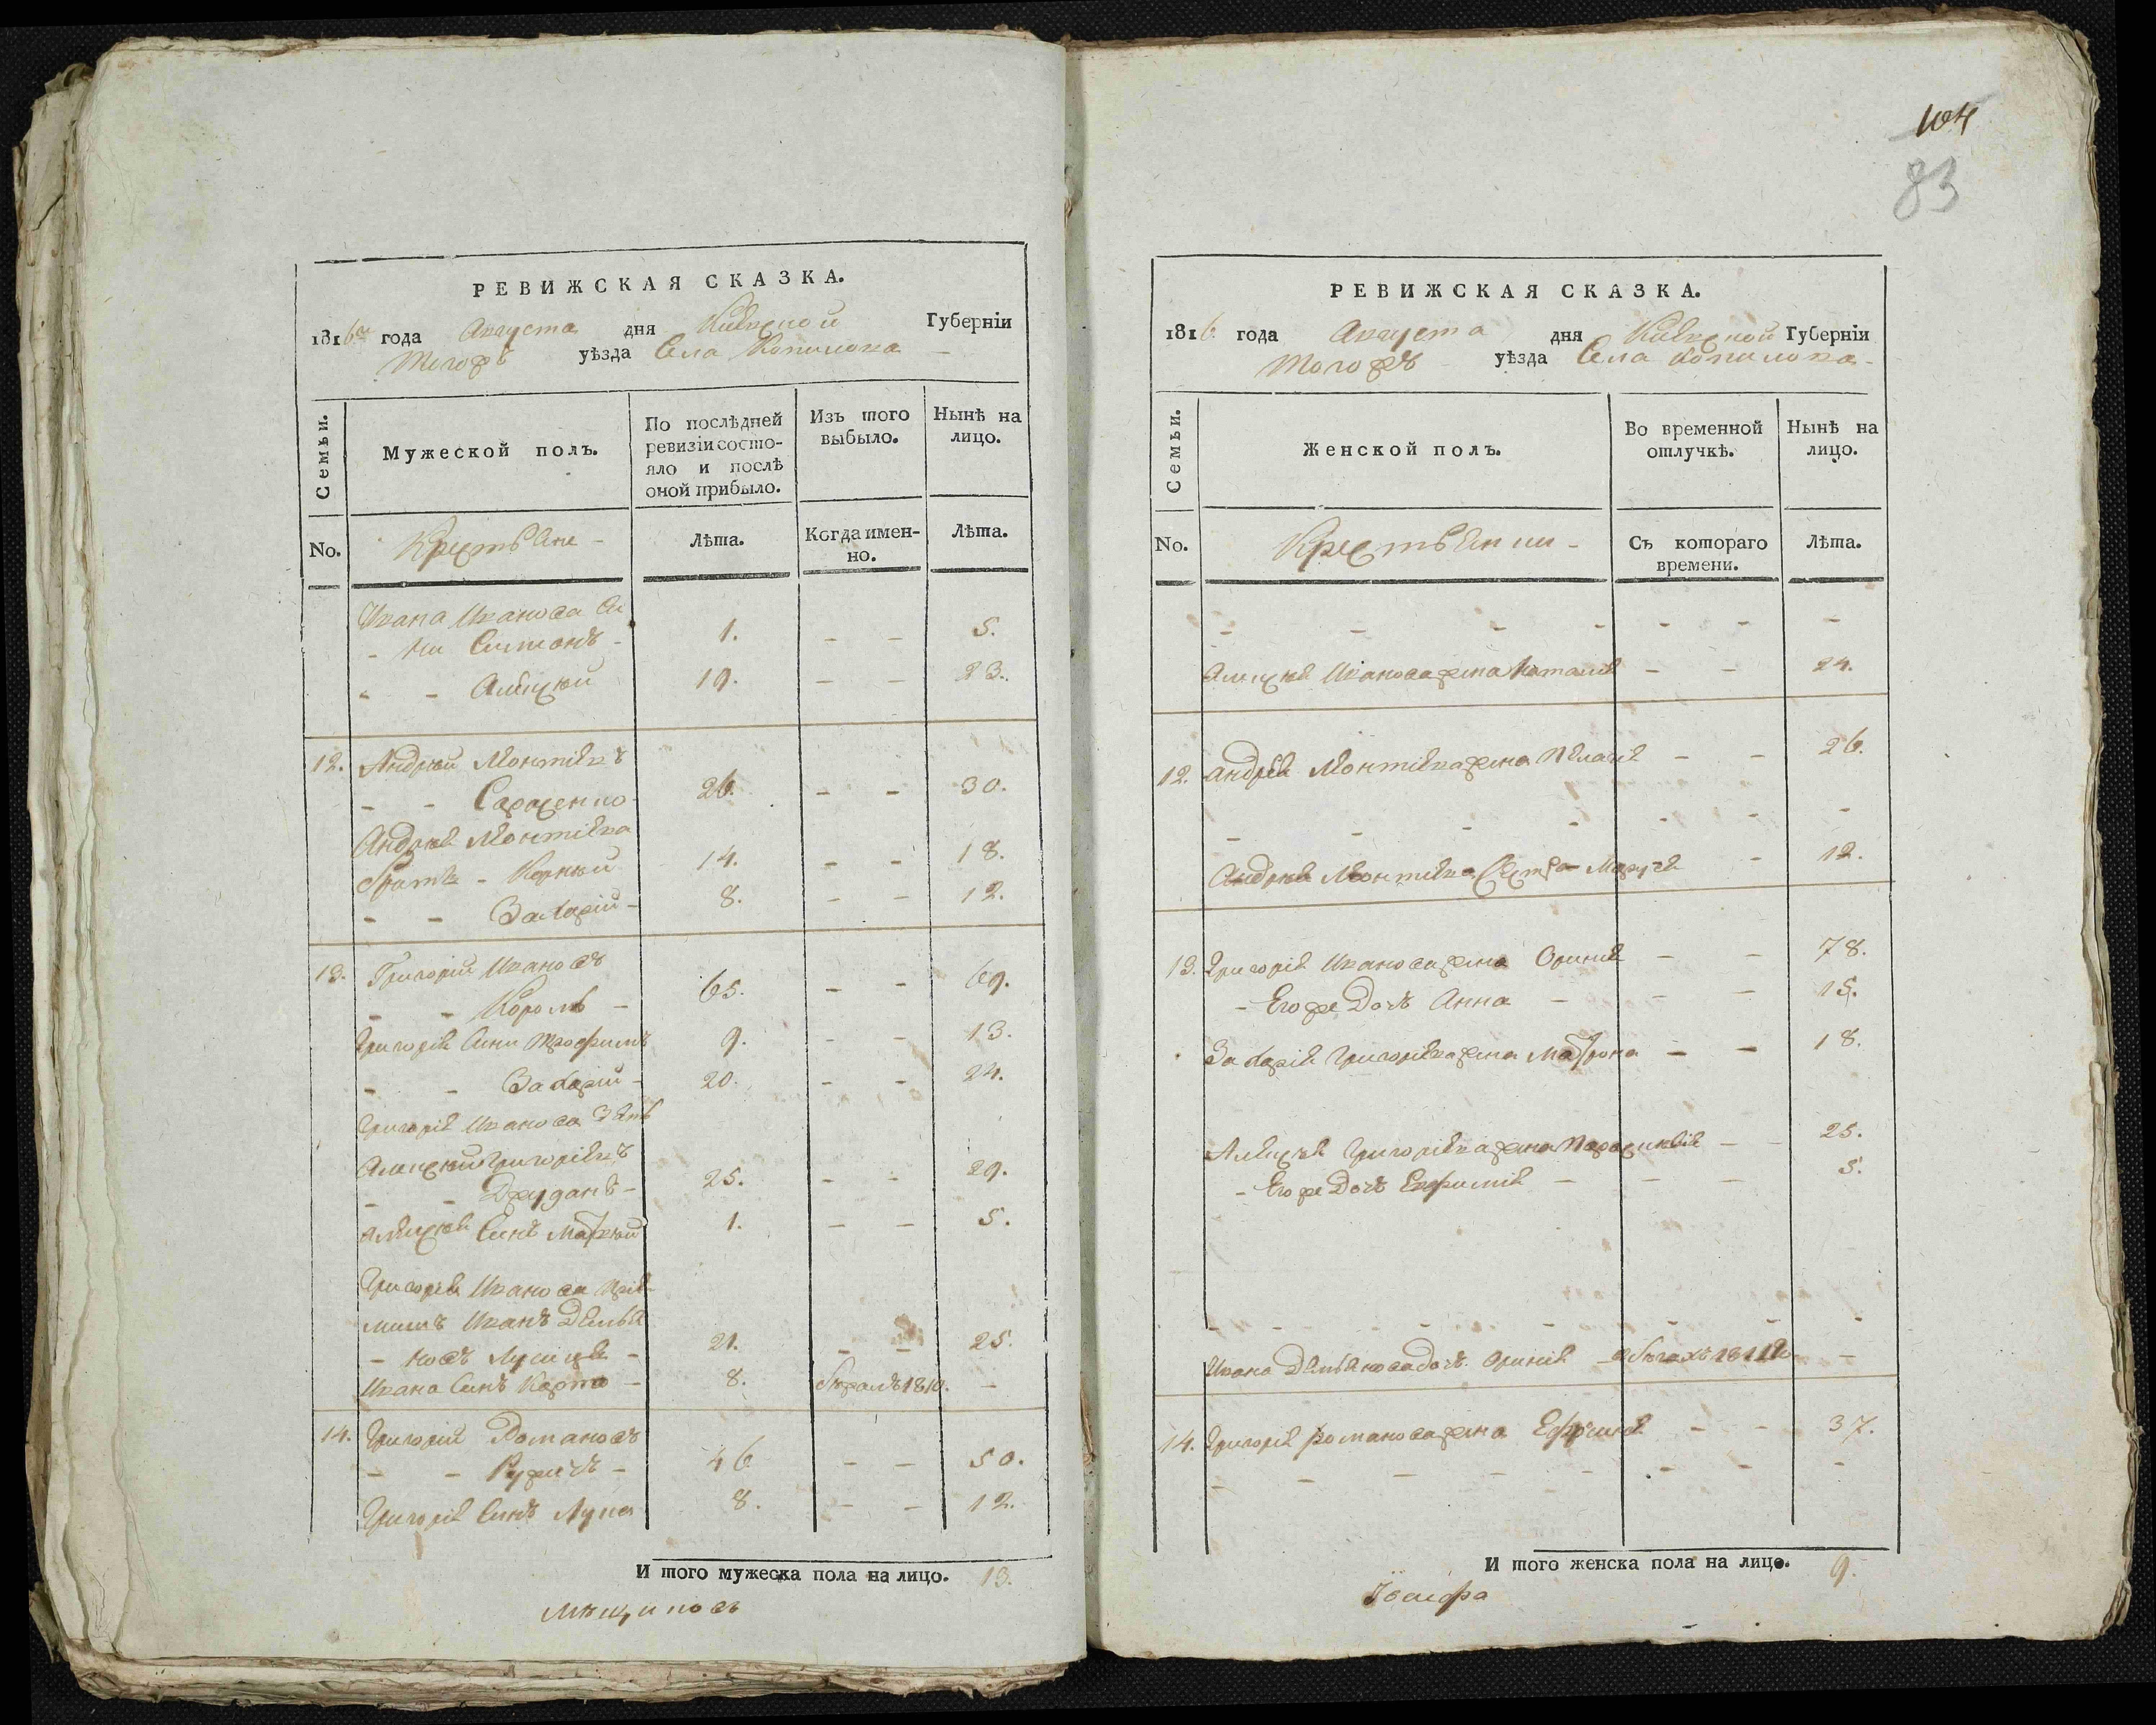 РЕВИЖСКАЯ СКАЗКА.
1816 года Августа дня Киевской Губернїи
тогожъ уѣзда Села Копилова
Семьи.
Мужеской полъ.
По послѣдней ревизїи состояло и послѣ оной прибыло.
Изъ того выбыло.
Нынѣ на лицо.
No.
Крестьяне
Лѣта.
Когда именно.
Лѣта.
Ивана Иванова Си
ни Симонъ 1. 5.
Алексѣй 19. 23.
12. Андрѣй Леонтіевъ
26. 30.
Андрѣя Леонтіева
братья Корнѣй 14. 18.
Захарій 8. 12.
13. Григорій Ивановъ
Король 65. 69.
Григорія Сини Трофимъ 9. 13.
Захарій 20. 24.
Григорія Иванова Зять
Алексѣй Григоріевъ
25. 29.
Алексѣя Синъ Матвѣй 1. 5.
Григорія Иванова Прий
мишъ Иванъ Демья
новъ 21. 25.
Ивана Синъ Карпо 8. 1810.
14. Григорій Романовъ
46 50.
Григорія Синъ Лука 8. 12.
И того мужеска пола на лицо. 13.
104
83
РЕВИЖСКАЯ СКАЗКА.
1816 года Августа дня Киевской Губернїи
тогожъ уѣзда Села Копилова
Семьи.
Женской полъ.
Во временной отлучкѣ.
Нынѣ на лицо.
No.
Крестьянки
Съ котораго времени.
Лѣта.
Алексѣя Иванова жена Наталія 24.
12. Андрѣя Леонтіева жена Пелагія 26.
Андрѣя Леонтіева Сестра 12.
13. Григорія Иванова жена Оринія 78.
Его же Дочь Анна 15.
Захарія Григоріева жена Матрона 18.
Алексѣя Григоріева жена Параскевія 25.
Его же Дочь Евфимія 5.
Ивана Демьянова дочь Оринія в бегахъ 1811
14. Григорія Романова жена 37.
И того женска пола на лицо. 9.